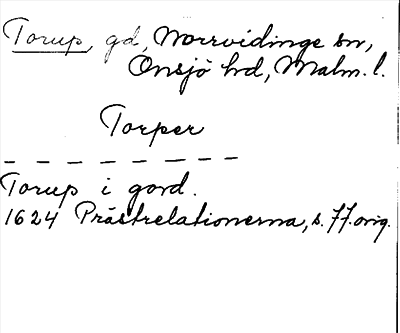 Torup, gd, Norrvidinge sn,
Onsjö hd, Malm. l.
Torper
– – – – – – – –
Torup i gård.
1624 Prästrelationerna, s. 77. orig.